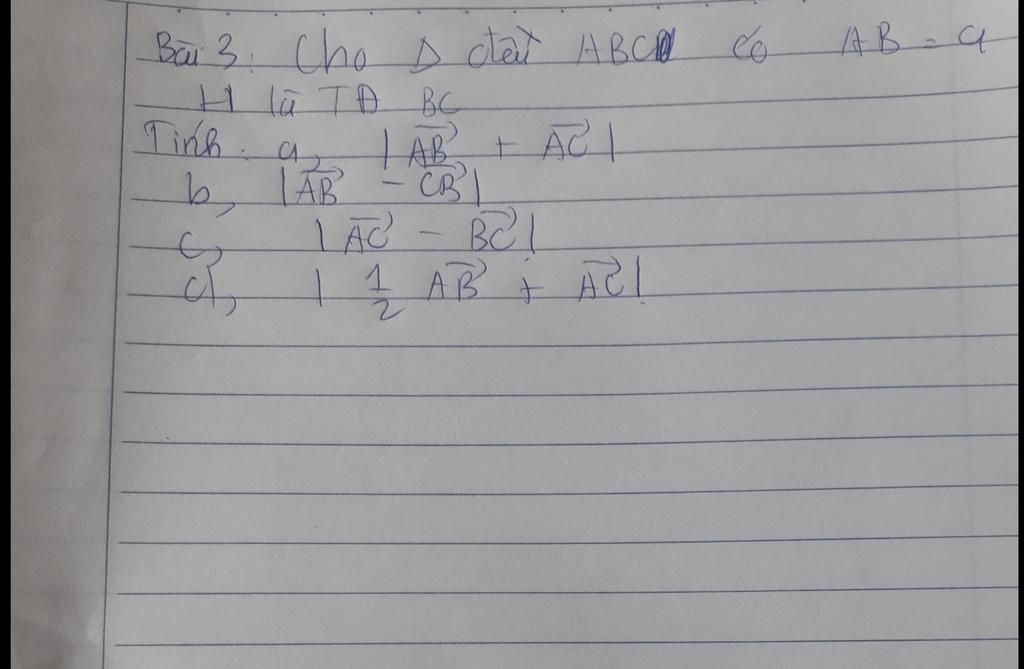 Bài 3: Cho Δ đều ABC có AB = a
H là TĐ BC
Tính: a, |\overrightarrow{AB} + \overrightarrow{AC}|
b, |\overrightarrow{AB} - \overrightarrow{CB}|
c, |\overrightarrow{AC} - \overrightarrow{BC}|
d, |\frac{1}{2} \overrightarrow{AB} + \overrightarrow{AC}|